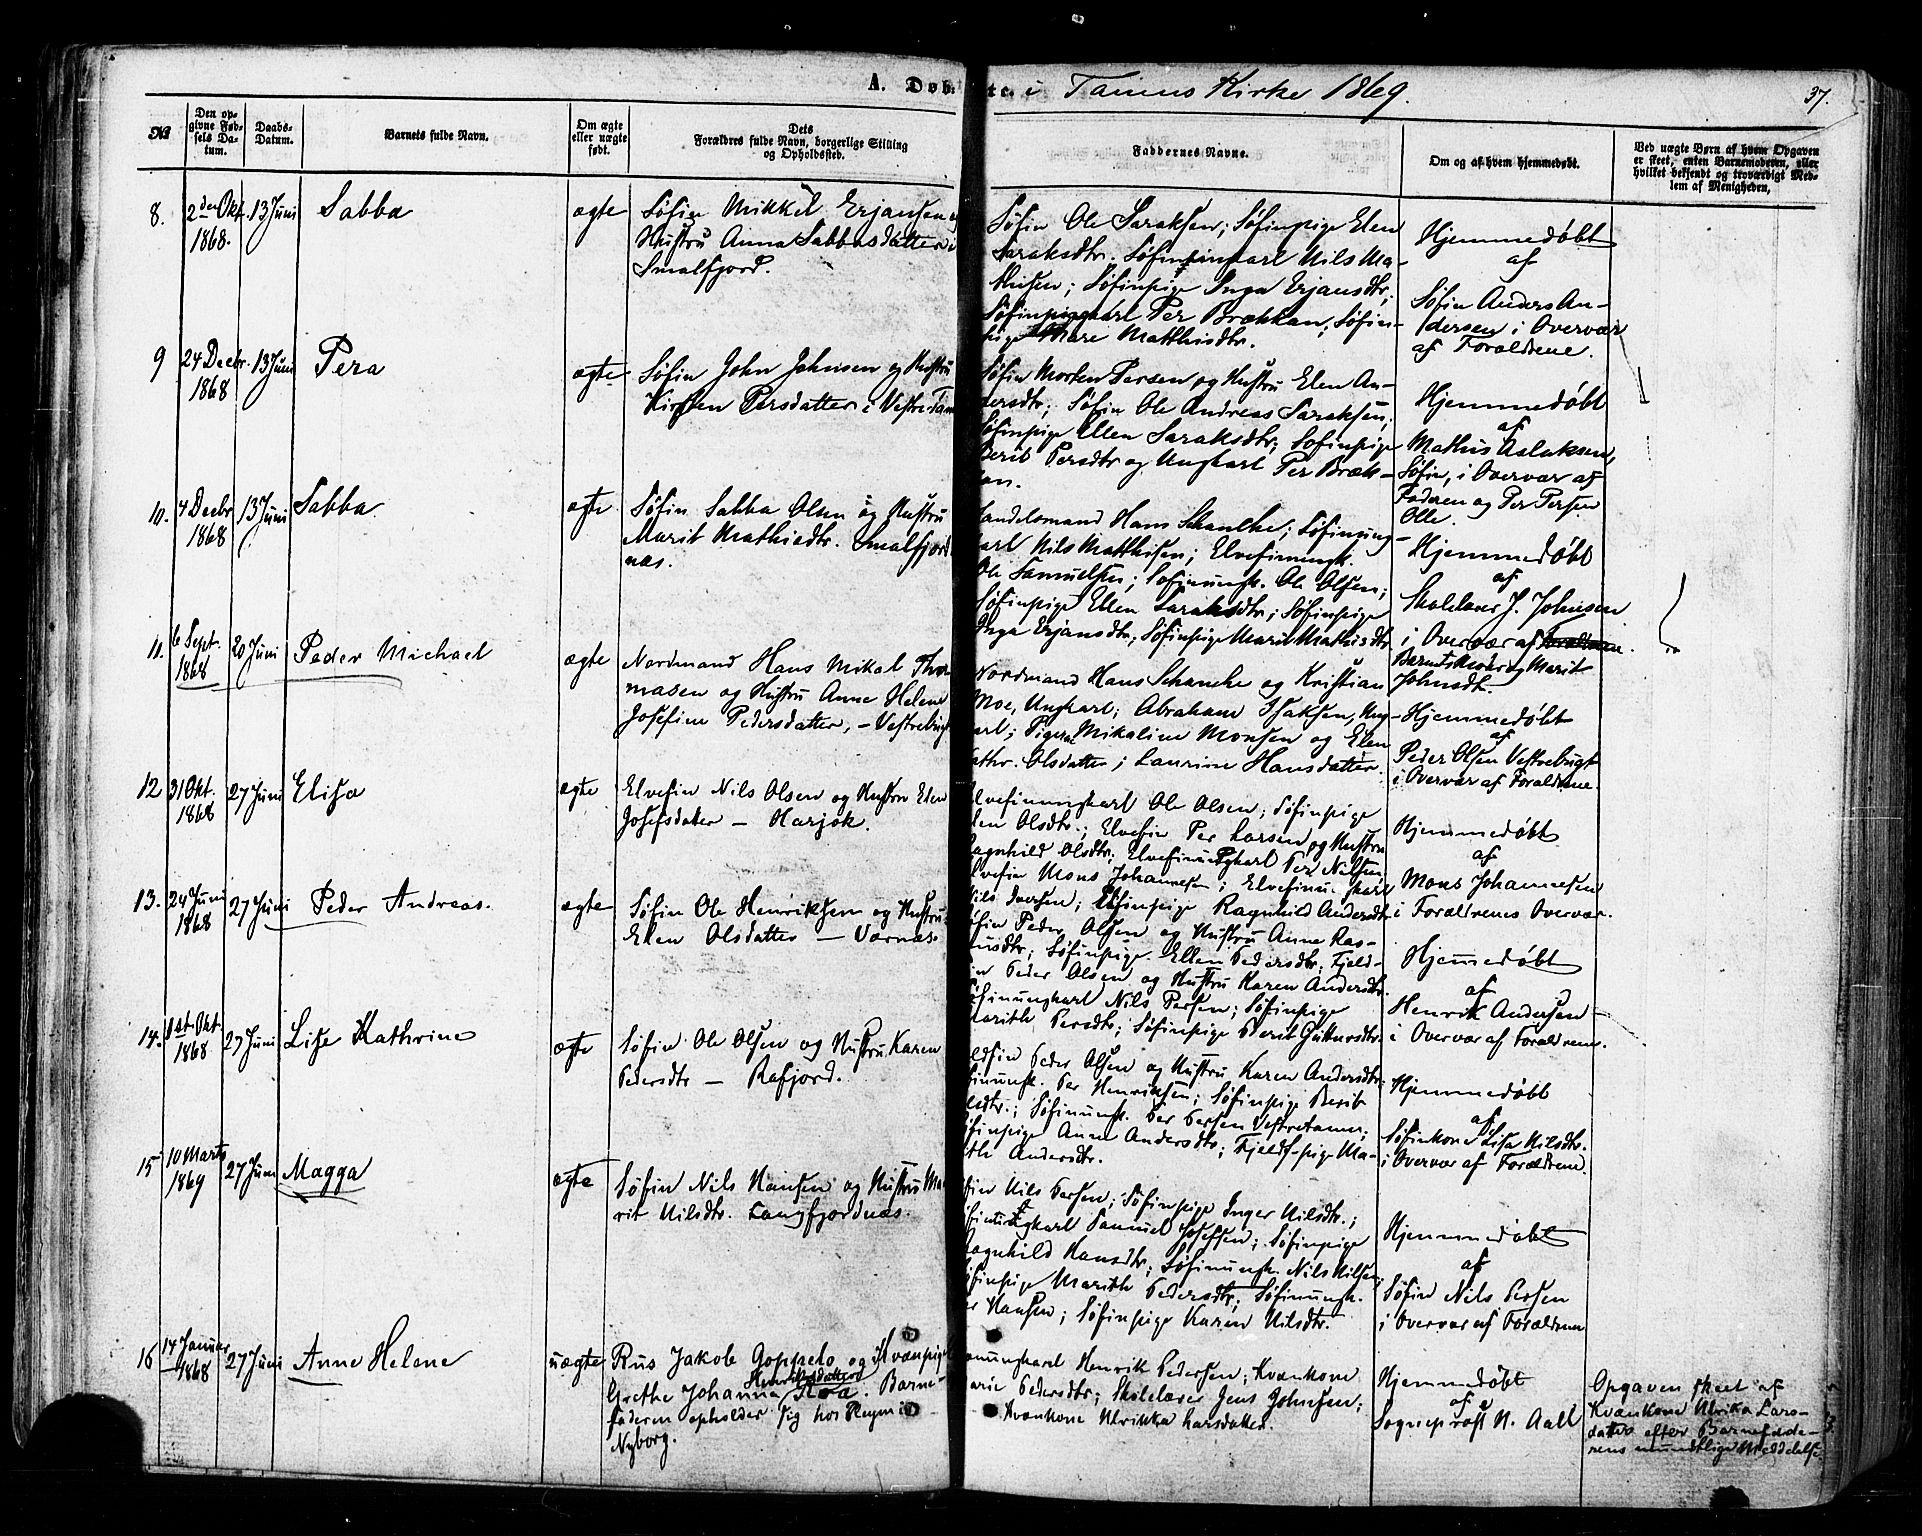 A. Døb- te. i Tanens Kirke 1869.
37.
No
Den opgivne Fødsels Datum.
Daabs-Datum.
Barnets fulde Navn.
Om ægte eller uægte født.
Dets Forældres fulde Navn, borgerlige Stilling og Opholdssted.
Faddernes Navne.
Om og af hvem hjemmedøbt.
Ved uægte Børn af hvem Opgaven er skeet, enten Barnemoderen, eller hvilket bekjendt og troværdigt Medlem af Menigheden.
8. 2den Okt. 1868. 13 Juni Sabba ægte
Søfin Mikkel Erjansen og
Hustru Anna Sabbasdatter i
Smalfjord.
Søfin Ole Saraksen; Søfinpige Elen
Saraksdtr. Søfinkarl Nils Ma-
thisen; Søfinpige Inga Erjansdtr;
Per Brækkan; Søfin-
pige Mare Matthisdtr.
Hjemmedøbt
af
Søfin Anders An-
dersen i Overvær
af Forældrene.
9 24 Decbr. 1868 13 Juni Pera ægte
Søfin John Johnsen og Hustru
Kirsten Persdatter i Vestre Tan
Søfin Morten Persen og Hustru Elen An-
dersdtr; Søfin Ole Andreas Saraksen;
Søfinpige Ellen Saraksdtr; Søfinpige
Berit Persdtr og Ungkarl Per Bræk-
an.
Hjemmedøbt
af
Mathis Aslaksen,
Søfin, i Overvær af
Faderen og Per Persen
Olle.
10. 4 Decbr 1868 13 Juni Sabba. ægte
Søfin Sabba Olsen og Hustru
Marit Mathisdtr. Smalfjord
næs.
Handelsmand Hans Schanche; Søfinung-
karl Nils Matthisen; Elvefinungk.
Ole Samuelsen; Søfinungk. Ole Olsen;
Søfinpige Ellen Saraksdtr; Søfinpige
Inga Erjansdtr; Søfinpige Marit Mathisdtr.
Hjemmedøbt
af
Skolelærer J. Johnsen
i Overvær af Forældrene.
Barnets Moder og Marit
Johnsdtr.
11. 6 Sept. 1868 20 Juni Peder Michael ægte
Nordmand Hans Mikal Tho-
masen og Hustru Anne Helene
Josefine Pedersdatter, – Vestrebugt
Nordmand Hans Schanche og Kristian
Moe, Ungkarl; Abraham Isaksen, Ung-
karl; Pigerne Mikaline Monsen og Elen
Kathr. Olsdatter; Laurine Hansdatter.
Hjemmedøbt
af
Peder Olsen Vestrebugt
i Overvær af Forældrene.
12 31 Okt. 1868 27 Juni Elisa ægte
Elvefin Nils Olsen og Hustru Elen
Josefsdatter – Harjok.
Elvefinungkarl Ole Olsen; Søfinpige
Elen Olsdtr; Elvefin Per Larsen og Hustru
Ragnhild Olsdtr; Elvefinungkarl Per Nilsen
Elvefin Mons Johannesen; Elvefinungkarl
Nils Iversen; Elvfinpige Ragnhild Andersdtr
Hjemmedøbt
af
Mons Johannesen
i Forældrenes Overvær.
13. 24 Juni 1868 27 Juni Peder Andreas. ægte
Søfin Ole Henriksen og Hustru
Elen Olsdatter – Værnæs.
Søfin Peder Olsen og Hustru Anne Ras-
musdtr; Søfinpige Ellen Pedersdtr; Fjeld-
fin Peder Olsen og Hustru Karen Andersdtr.
Søfinungkarl Nils Persen; Søfinpige
Marith Persdtr; Søfinpige Berit Guttormsdtr
Hjemmedøbt
af
Henrik Andersen
i Overvær af Forældrene.
14. 1st. Okt. 1868 27 Juni Lise Kathrine ægte
Søfin Ole Olsen og Hustru Karen
Pedersdtr – Rafjord.
Fjeldfin Peder Olsen og Hustru Karen Andersdtr;
Søfinungk. Per Henriksen; Søfinpige Berit
Olsdtr; Søfinungk. Per Persen Vestretanen;
Søfinpige Anne Andersdtr; Fjeldf-pige Ma-
reth Andersdtr.
Hjemmedøbt
af
Søfinkone Lisa Nilsdtr.
i Overvær af Forældrene.
15 10 Marts 1869 27 Juni Magga ægte
Søfin Nils Hansen og Hustru Ma-
rit Nilsdtr. Langfjordnæs.
Søfin Nils Persen; Søfinpige Inger Nilsdtr.;
Søfinungkarl Samuel Josefsen; Søfinpige
Ragnhild Hansdtr; Søfinungk. Nils Nilsen;
Søfinpige Marith Pedersdtr; Søfinungk.
Per Hansen; Søfinpige Karen Nilsdtr.
Hjemmedøbt
af
Søfin Nils Persen
i Overvær af Forældrene
16 14 Januar 1868 27 Juni Anne Helene uægte
Rus Jakob Goppelo og Kvænpige
Grethe Johanna Henriksdatter Roa. Barne-
faderen opholder sig hos
Nyborg.
Kvænungkarl Henrik Pedersen; Kvænkone
Marie Pedersdtr; Skolelærer Jens Johnsen;
Kvænkone Ulrikka Larsdatter.
Hjemmedøbt
af
Sogneprest N. Aall
Opgaven skeet af
Kvænkone Ulrika Lars-
datter efter Barnefade-
rens mundtlige Meddelelse